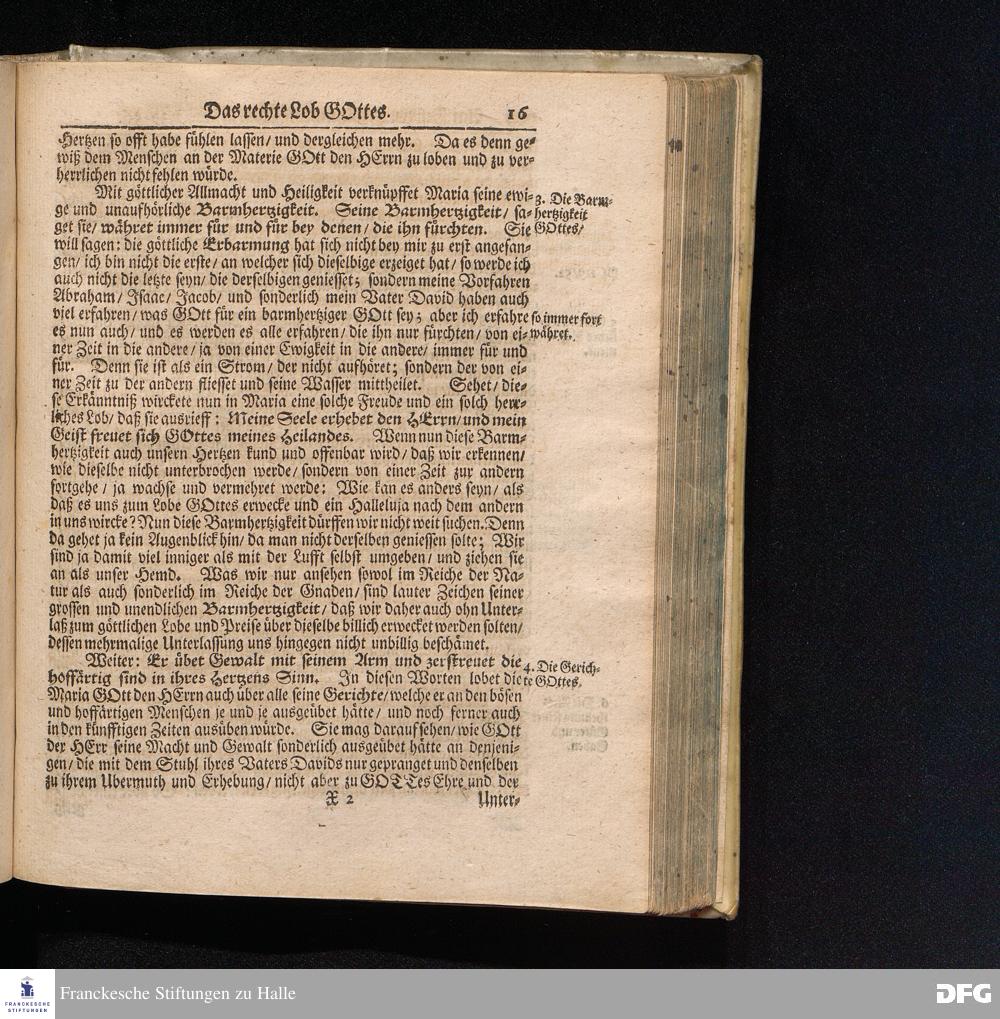 Das rechte Lob GOttes. 16
Hertzen so offt habe fühlen lassen/ und dergleichen mehr. Da es denn ge-
wiß dem Menschen an der Materie GOtt den HErrn zu loben und zu ver-
herrlichen nicht fehlen würde.
Mit göttlicher Allmacht und Heiligkeit verknüpffet Maria seine ewi-
ge und unaufhörliche Barmhertzigkeit. Seine Barmhertzigkeit/ sa-
get sie/ währet immer für und für bey denen/ die ihn fürchten. Sie
will sagen: die göttliche Erbarmung hat sich nicht bey mir zu erst angefan-
gen/ ich bin nicht die erste/ an welcher sich dieselbige erzeiget hat/ so werde ich
auch nicht die letzte seyn/ die derselbigen geniesset; sondern meine Vorfahren
Abraham/ Isaac/ Jacob/ und sonderlich mein Vater David haben auch
viel erfahren/ was GOtt für ein barmhertziger GOtt sey; aber ich erfahre
es nun auch/ und es werden es alle erfahren/ die ihn nur fürchten/ von ei-
ner Zeit in die andere/ ja von einer Ewigkeit in die andere/ immer für und
für. Denn sie ist als ein Strom/ der nicht aufhöret; sondern der von ei-
ner Zeit zu der andern fliesset und seine Wasser mittheilet. Sehet/ die-
se Erkänntniß wirckete nun in Maria eine solche Freude und ein solch herr-
liches Lob/ daß sie ausrieff: Meine Seele erhebet den HErrn/ und mein
Geist freuet sich GOttes meines Heilandes. Wenn nun diese Barm-
hertzigkeit auch unsern Hertzen kund und offenbar wird/ daß wir erkennen/
wie dieselbe nicht unterbrochen werde/ sondern von einer Zeit zur andern
fortgehe/ ja wachse und vermehret werde: Wie kan es anders seyn/ als
daß es uns zum Lobe GOttes erwecke und ein Halleluja nach dem andern
in uns wircke? Nun diese Barmhertzigkeit dürffen wir nicht weit suchen. Denn
da gehet ja kein Augenblick hin/ da man nicht derselben geniessen solte; Wir
sind ja damit viel inniger als mit der Lufft selbst umgeben/ und ziehen sie
an als unser Hemd. Was wir nur ansehen sowol im Reiche der Na-
tur als auch sonderlich im Reiche der Gnaden/ sind lauter Zeichen seiner
grossen und unendlichen Barmhertzigkeit/ daß wir daher auch ohn Unter-
laß zum göttlichen Lobe und Preise über dieselbe billich erwecket werden solten/
dessen mehrmalige Unterlassung uns hingegen nicht unbillig beschämet.
Weiter: Er übet Gewalt mit seinem Arm und zerstreuet die
hoffärtig sind in ihres Hertzens Sinn. In diesen Worten lobet die
Maria GOtt den HErrn auch über alle seine Gerichte/ welche er an den bösen
und hoffärtigen Menschen je und je ausgeübet hätte/ und noch ferner auch
in den künfftigen Zeiten ausüben würde. Sie mag darauf sehen/ wie GOtt
der HErr seine Macht und Gewalt sonderlich ausgeübet hätte an denjeni-
gen/ die mit dem Stuhl ihres Vaters Davids nur gepranget und denselben
zu ihrem Ubermuth und Erhebung/ nicht aber zu GOTTes Ehre und der
X 2 Unter-
3. Die Barm-
hertzigkeit
GOttes/
so immer fort
währet.
4. Die Gerich-
te GOttes.
FRANCKESCHE
STIFTUNGEN
Franckesche Stiftungen zu Halle
DFG